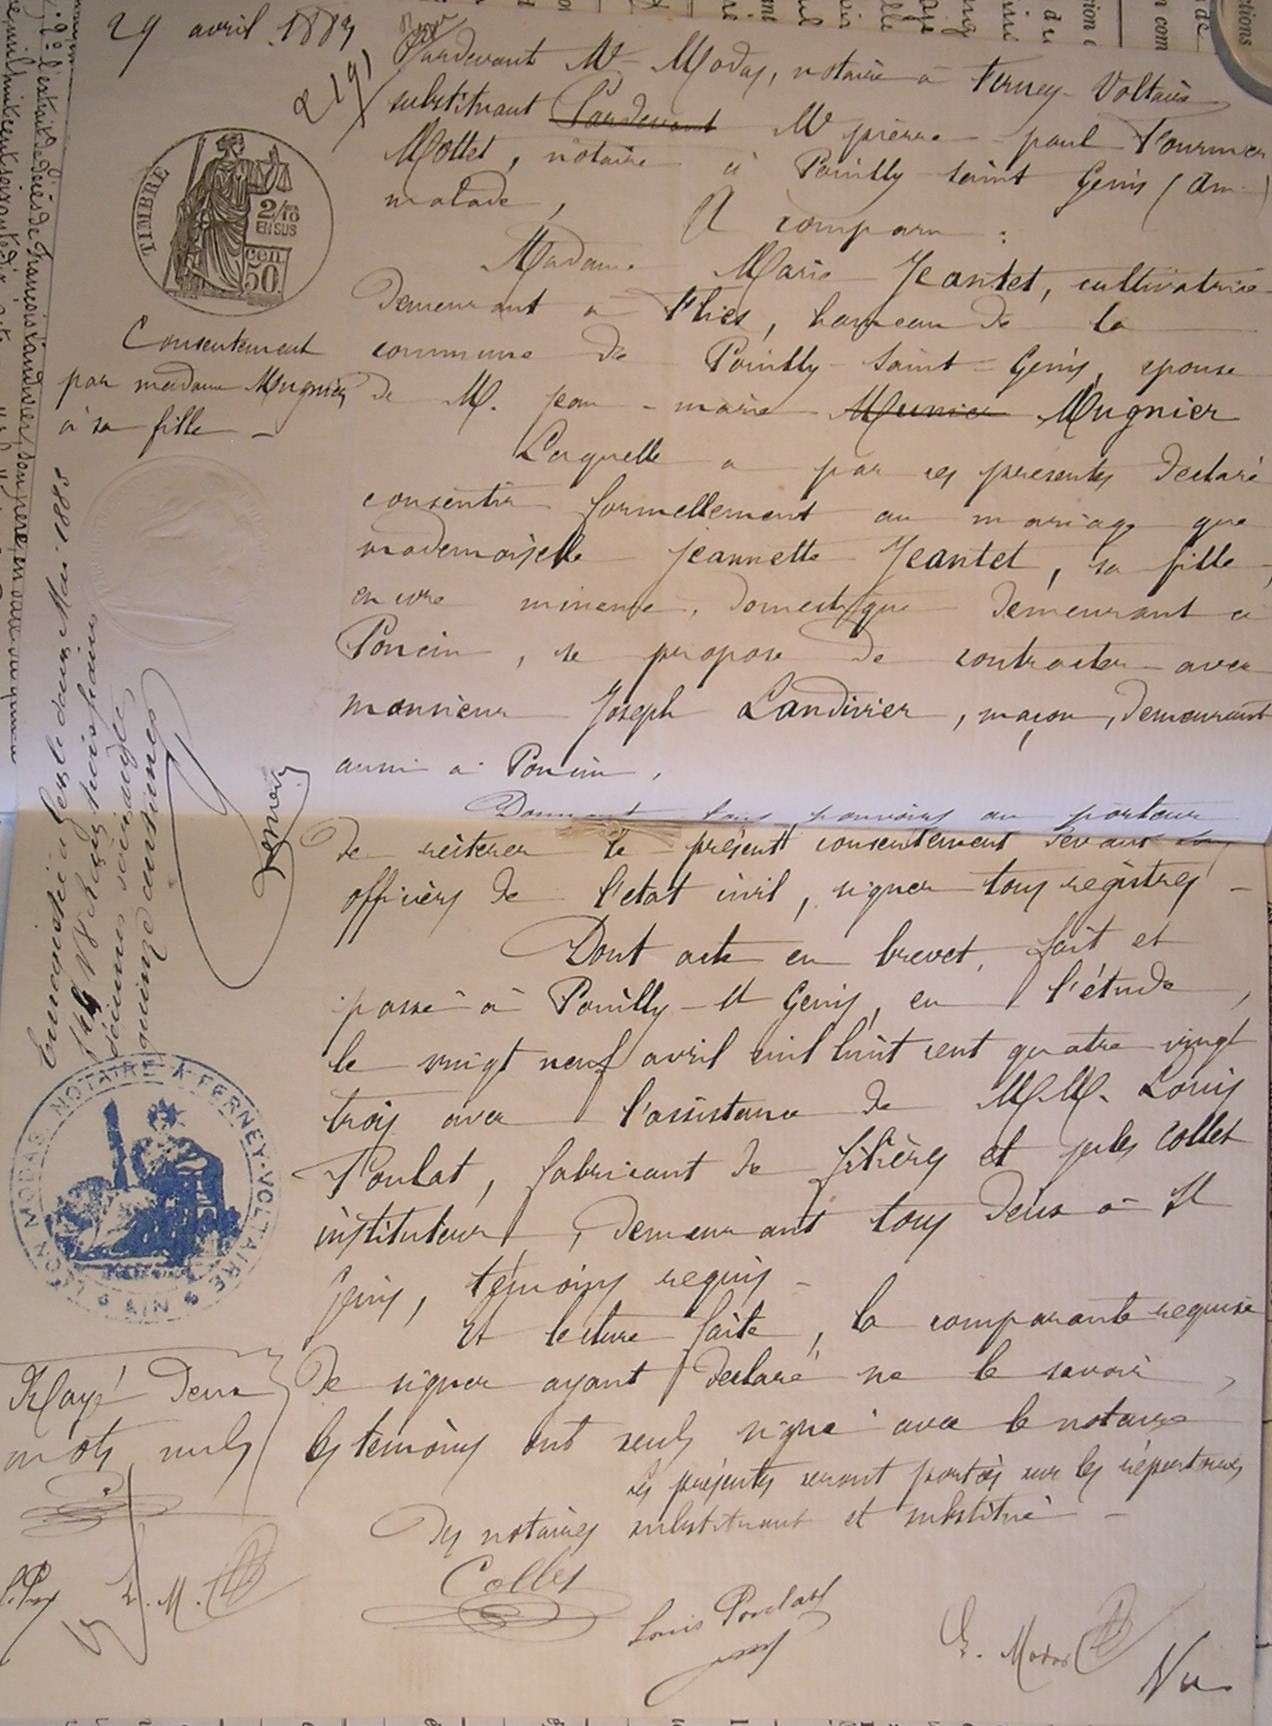 29 avril 1883
Pardevant Me Modas, notaire à Ferney-Voltaire
substituant Pardevant Me pierre-paul Fournier
Mottet, notaire à Pouilly saint Genis (Ain)
malade,
A comparu :
TIMBRE
2/10
EN SUS
50 cen
Madame Marie Jeantet, cultivatrice
demeurant à Flies, hameau de la
commune de Pouilly-Saint-Genis, épouse
de M. jean-marie Munier Mugnier
Consentement
par madame Mugnier
à sa fille
Laquelle a par ces présentes déclaré
consentir formellement au mariage que
mademoiselle Jeannette Jeantet, sa fille,
encore mineure, domestique demeurant à
Poncin, se propose de contracter avec
monsieur Joseph Landivier, maçon, demeurant
aussi à Poncin,
Donnant tous pouvoirs au porteur
de réiterer le présent consentement devant tous
officiers de l'état civil, signer tous registres
Dont acte en brevet, fait et
passé à Pouilly-St Genis, en l'étude,
le vingt neuf avril mil huit cent quatre vingt
trois avec l'assistance de MM. Louis
Poulat, fabricant de filières et jules Collet
instituteur, demeurant tous deux à St
Genis, témoins requis
Et lecture faite, la comparante requise
de signer ayant déclaré ne le savoir,
les témoins ont seuls signé avec le notaire
les présentes seront portées sur les répertoires
des notaires substituant et substitué
Enregistré à Gex le deux Mai 1883
trois francs
décimes soixante
quinze centimes
MODAS NOTAIRE A FERNEY-VOLTAIRE
AIN
Rayé deux
mots nuls
Collet
Louis Poulat
E. Modas
Vu